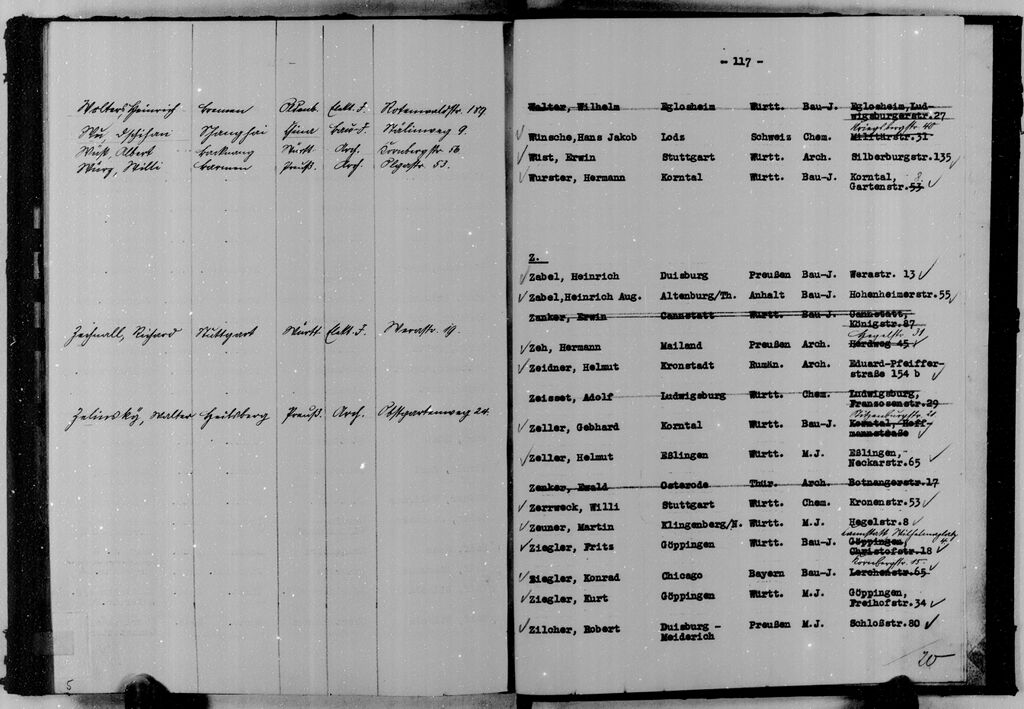 Wolters, Heinrich Bremen Oldenb. Elekt. I. Rotenwaldstr. 189
Schanghai China Bau-I. 9.
Wüst, Albert Backnang Württ. Arch. Dornbergstr. 56
Würz, Willi Barmen Preuß. Arch. Olgastr. 53.
Richard Stuttgart Württ. Elekt. I. Werastr. 19.
Zelinsky, Walter Heilsberg Preuß. Arch. 24.
5
- 117 -
Walter, Wilhelm Eglosheim Württ. Bau-J. Eglosheim, Lud-
wigsburgerstr. 27
Kriegsbergstr. 40
Wünsche, Hans Jakob Lodz Schweiz Chem. Militärstr. 31
Wüst, Erwin Stuttgart Württ. Arch. Silberburgstr. 135
Wurster, Hermann Korntal Württ. Bau-J. Korntal, 8.
Gartenstr. 53
Z.
Zabel, Heinrich Duisburg Preußen Bau-J. Werastr. 13
Zabel, Heinrich Aug. Altenburg/Th. Anhalt Bau-J. Hohenheimerstr. 55
Zanker, Erwin Cannstatt Württ. Bau-J. Cannstatt,
Königstr. 87
Hegelstr. 31
Zeh, Hermann Mailand Preußen Arch. Herdweg 45
Zeidner, Helmut Kronstadt Rumän. Arch. Eduard-Pfeiffer-
straße 154 b
Zeisset, Adolf Ludwigsburg Württ. Chem. Ludwigsburg,
Franzosenstr. 29
Zeller, Gebhard Korntal Württ. Bau-J. Korntal, Hoff-
mannstraße
Zeller, Helmut Eßlingen Württ. M.J. Eßlingen,
Neckarstr. 65
Zenker, Ewald Osterode Thür. Arch. Botnangerstr. 17
Zerrweck, Willi Stuttgart Württ. Chem. Kronenstr. 53
Zeuner, Martin Klingenberg/N. Württ. M.J. Hegelstr. 8
Cannstatt Wilhelmsplatz
Ziegler, Fritz Göppingen Württ. Bau-J. Göppingen, 4.
Christofstr. 18
Dornbergstr. 15
Ziegler, Konrad Chicago Bayern Bau-J. Lerchenstr. 65
Ziegler, Kurt Göppingen Württ. M.J. Göppingen,
Freihofstr. 34
Zilcher, Robert Duisburg - Preußen M.J. Schloßstr. 80
Meiderich
20